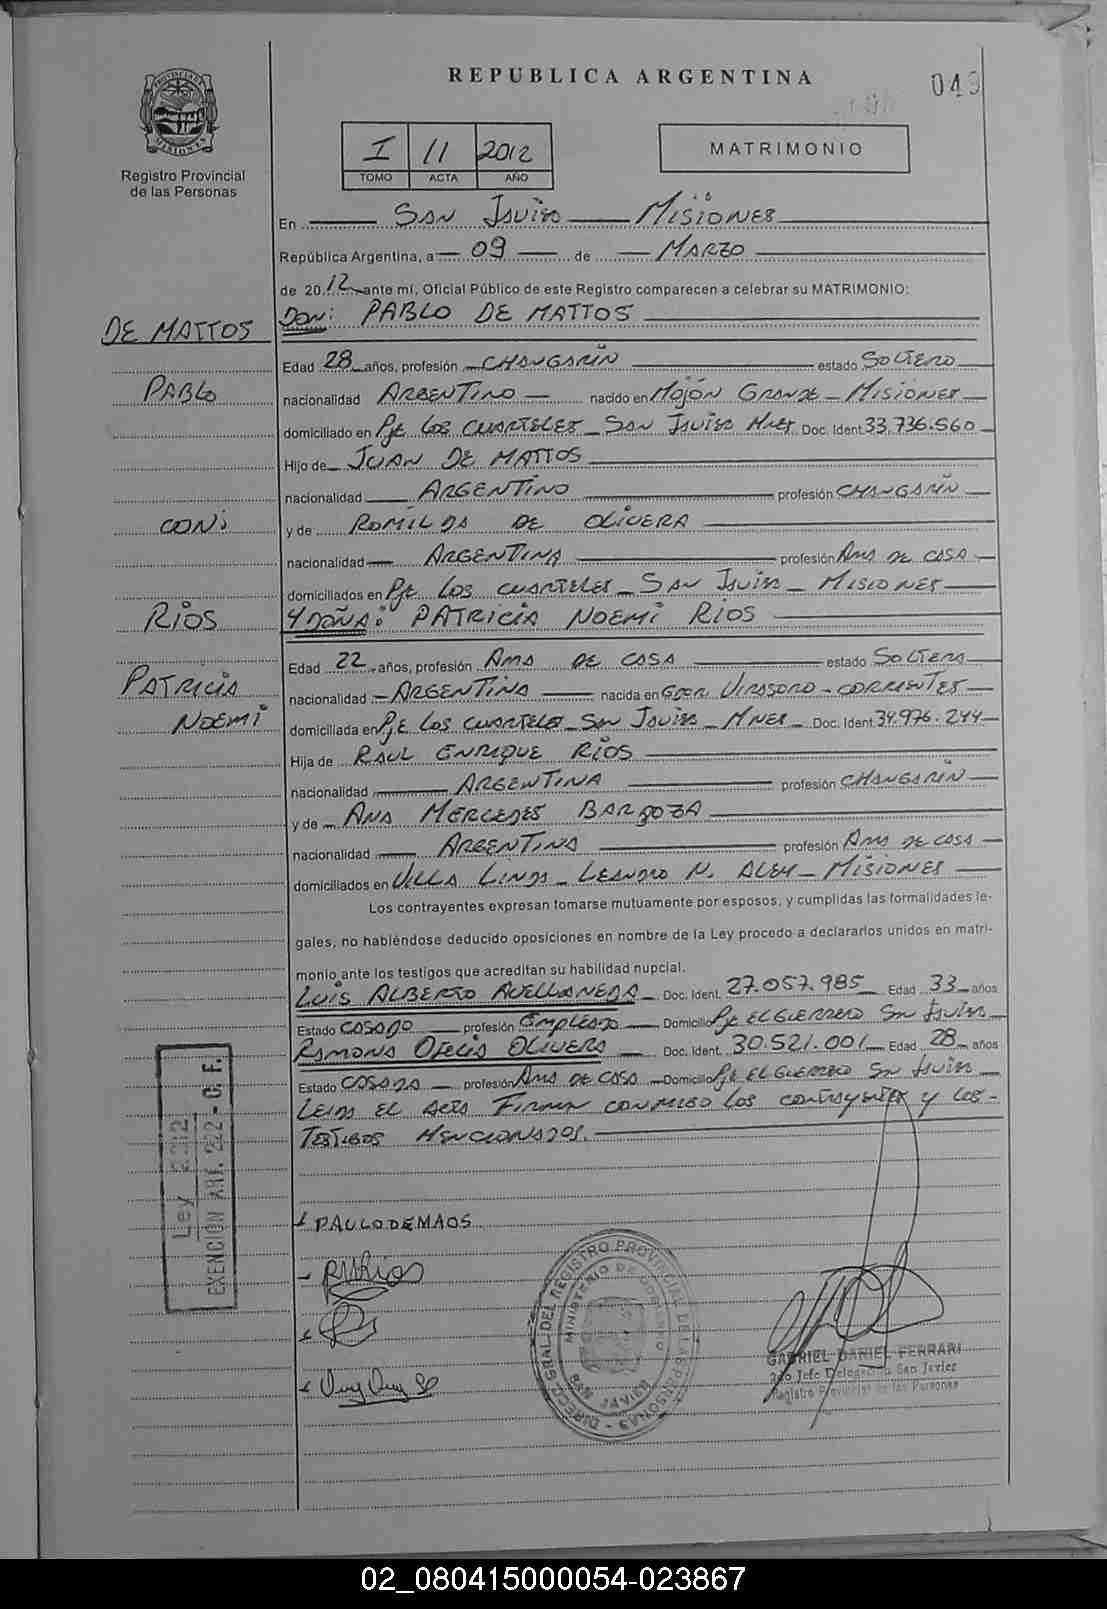 REPUBLICA ARGENTINA
049
PROVINCIA DE MISIONES
Registro Provincial
de las Personas
I 11 2012
TOMO ACTA AÑO
MATRIMONIO
En SAN JAVIER MISIONES
República Argentina, a 09 de MARZO
de 2012 ante mí, Oficial Público de este Registro comparecen a celebrar su MATRIMONIO:
DON: PABLO DE MATTOS
DE MATTOS
Edad 28 años, profesión CHANGARÍN estado SOLTERO
PABLO
nacionalidad ARGENTINO nacido en MOJÓN GRANDE - MISIONES
domiciliado en Pje LOS CUARTELES - SAN JAVIER MNES Doc. Ident. 33.736.560
Hijo de JUAN DE MATTOS
nacionalidad ARGENTINO profesión CHANGARÍN
CON:
y de ROMILDA DE OLIVERA
nacionalidad ARGENTINA profesión AMA DE CASA
domiciliados en Pje LOS CUARTELES - SAN JAVIER - MISIONES
RIOS
Y DOÑA: PATRICIA NOEMI RIOS
Edad 22 años, profesión AMA DE CASA estado SOLTERA
PATRICIA
nacionalidad ARGENTINA nacida en GDOR. VIRASORO - CORRIENTES
NOEMI
domiciliada en Pje LOS CUARTELES - SAN JAVIER - MNES Doc. Ident. 34.976.244
Hija de RAUL ENRIQUE RIOS
nacionalidad ARGENTINA profesión CHANGARÍN
y de ANA MERCEDES BARBOZA
nacionalidad ARGENTINA profesión AMA DE CASA
domiciliados en VILLA LINDA - LEANDRO N. ALEM - MISIONES
Los contrayentes expresan tomarse mutuamente por esposos, y cumplidas las formalidades le-
gales, no habiéndose deducido oposiciones en nombre de la Ley procedo a declararlos unidos en matri-
monio ante los testigos que acreditan su habilidad nupcial.
LUIS ALBERTO AVELLANEDA Doc. Ident. 27.057.985 Edad 33 años
Estado CASADO profesión EMPLEADO Domicilio Pje EL GUERRERO SAN JAVIER
RAMONA OFELIA OLIVERA Doc. Ident. 30.521.001 Edad 28 años
Estado CASADA profesión AMA DE CASA Domicilio Pje EL GUERRERO SAN JAVIER
LEIDA EL ACTA FIRMAN CONMIGO LOS CONTRAYENTES Y LOS
TESTIGOS MENCIONADOS.
Ley 2212
EXENCIÓN ART. 222 - C. F.
PAULODEMAOS
DIREC. GRAL. DEL REGISTRO PROVINCIAL DE LAS PERSONAS
MINISTERIO DE GOBIERNO
SAN JAVIER
GABRIEL DANIEL FERRARI
2do Jefe Delegación San Javier
Registro Provincial de las Personas
02_080415000054-023867